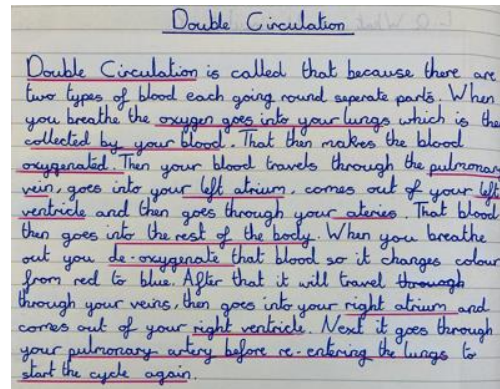 Double Circulation
Double Circulation is called that because there are
two types of blood each going round seperate parts. When
you breathe the oxygen goes into your lungs which is the
collected by your blood. That then makes the blood
oxygenated. Then your blood travels through the pulmonary
vein, goes into your left atrium, comes out of your left
ventricle and then goes through your ateries. That blood
then goes into the rest of the body. When you breathe
out you de-oxygenate that blood so it changes colour
from red to blue. After that it will travel through
through your veins, then goes into your right atrium and
comes out of your right ventricle. Next it goes through
your pulmonary artery before re-entering the lungs to
start the cycle again.